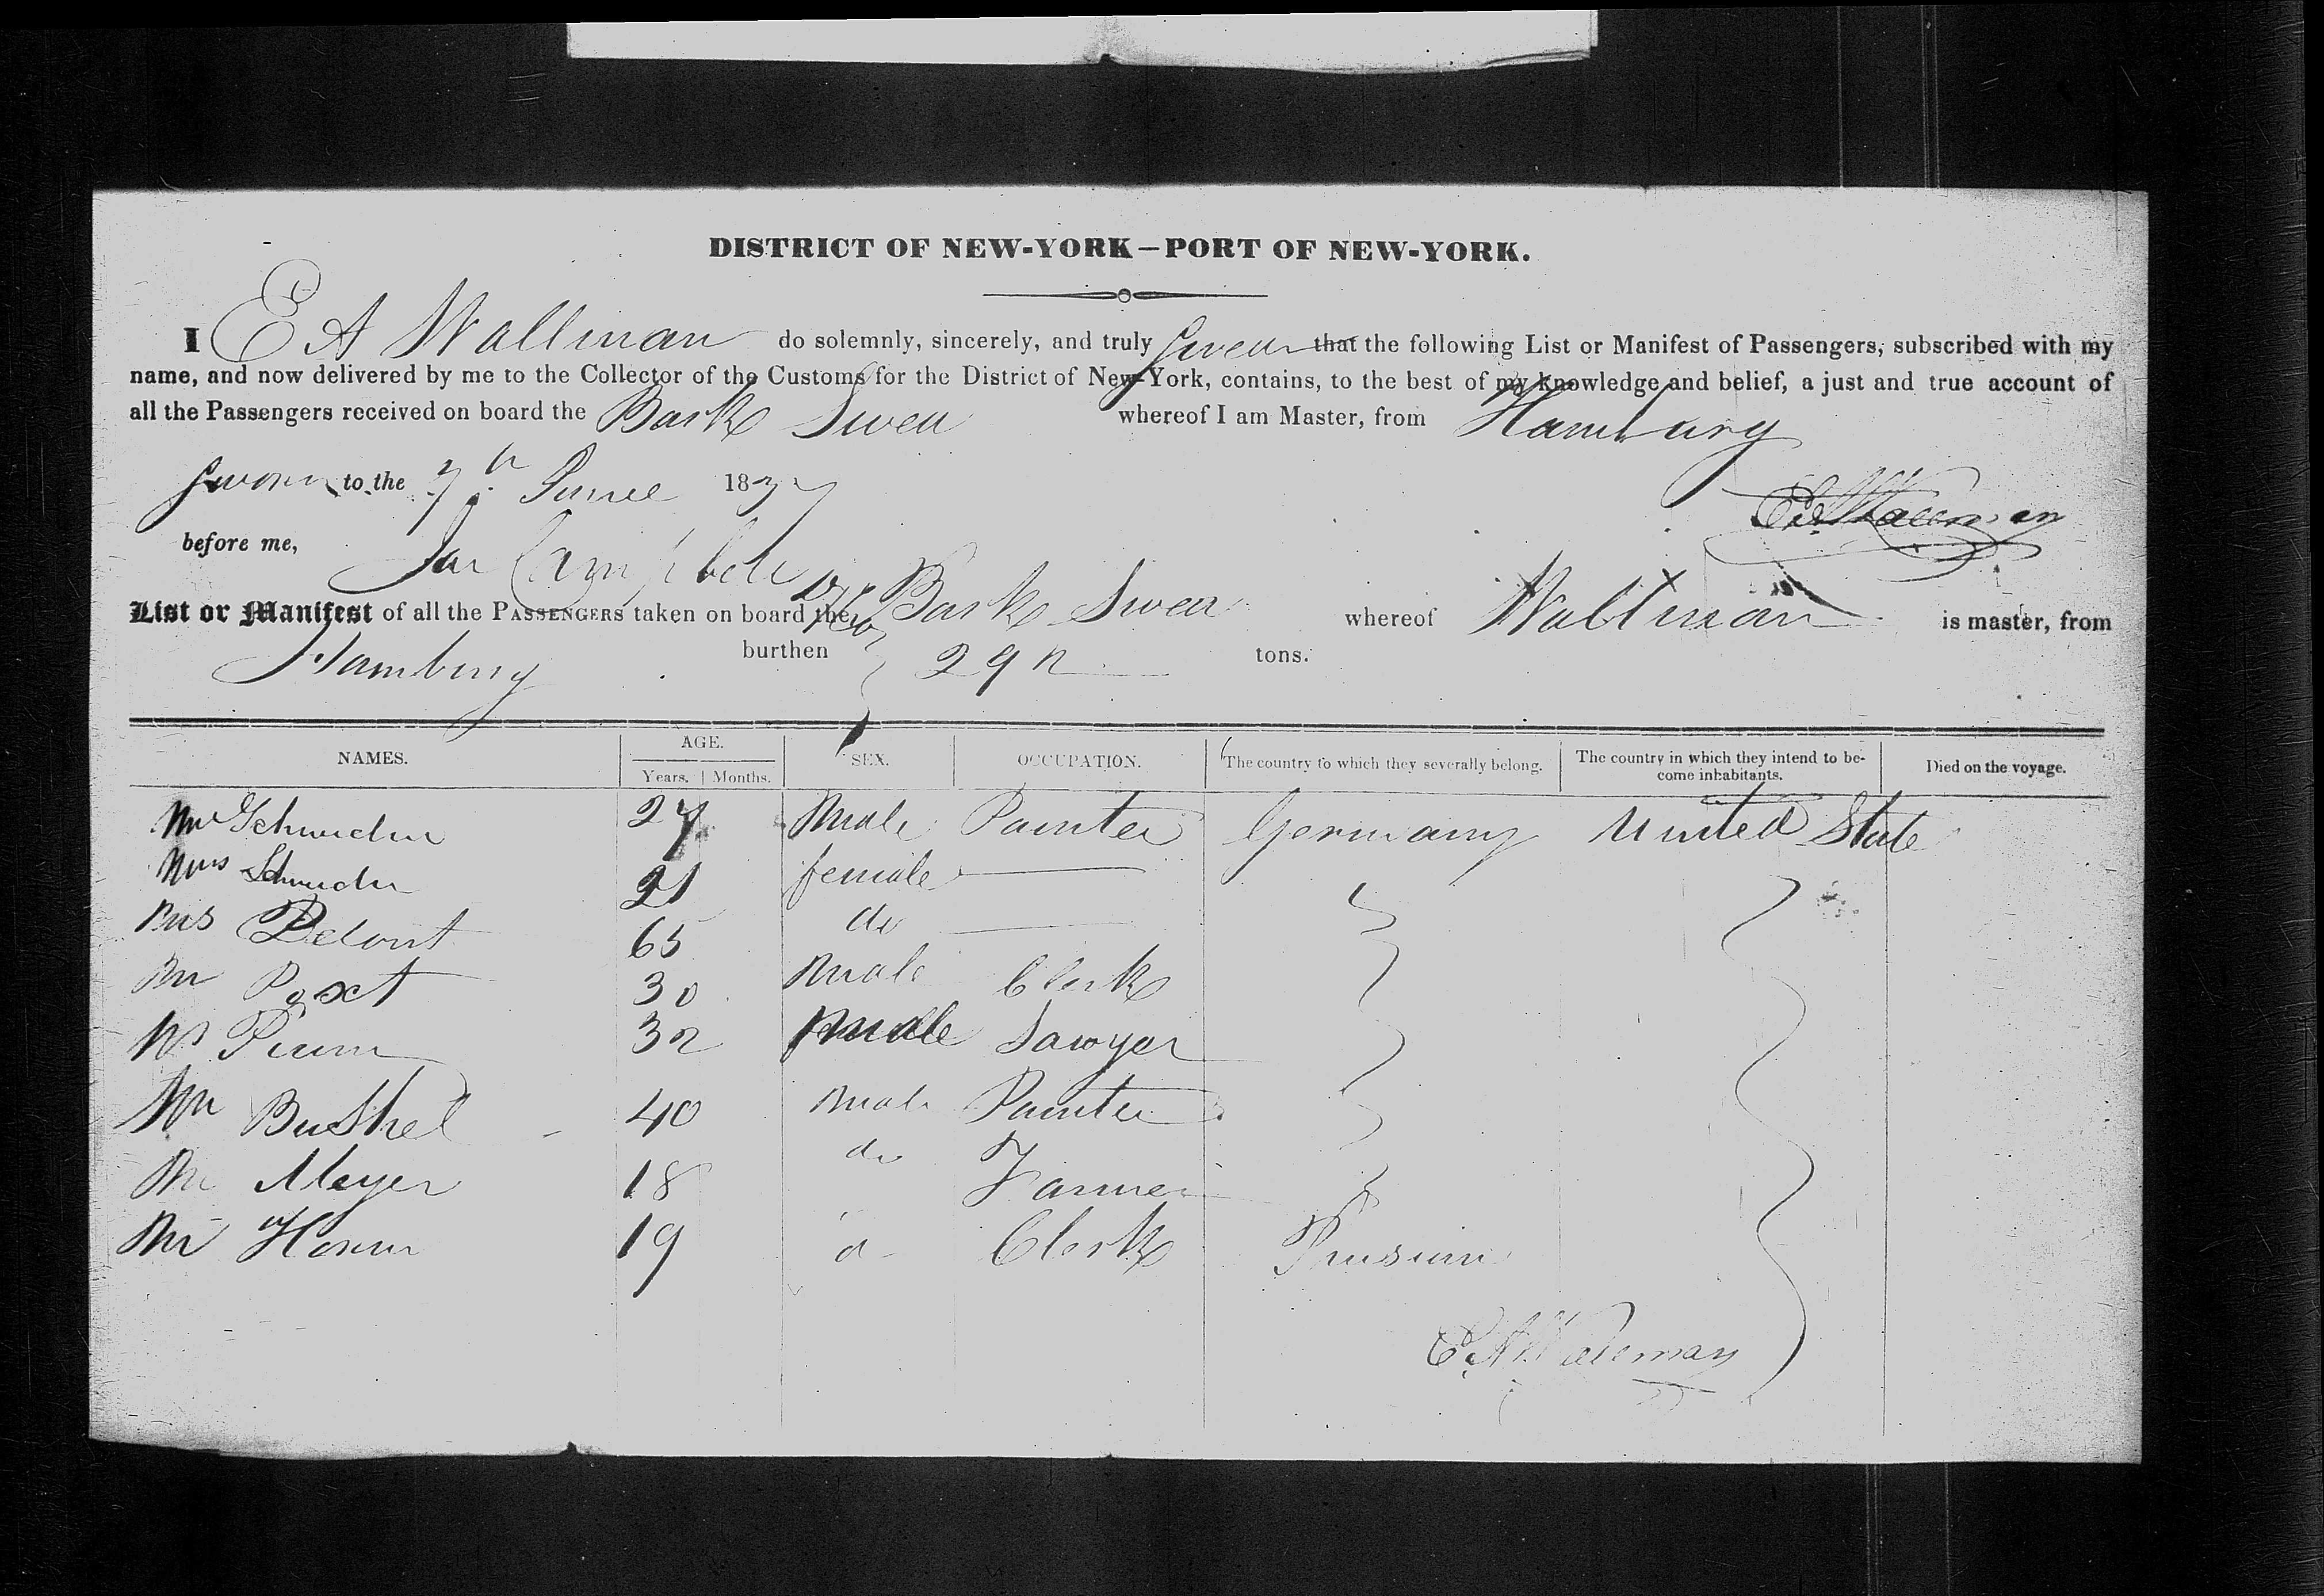 DISTRICT OF NEW-YORK—PORT OF NEW-YORK.
I E A Wallman do solemnly, sincerely, and truly swear that the following List or Manifest of Passengers, subscribed with my
name, and now delivered by me to the Collector of the Customs for the District of New-York, contains, to the best of my knowledge and belief, a just and true account of
all the Passengers received on board the Bark Swea whereof I am Master, from Hamburg
Sworn to the 7th June 1837
E A Wallman
before me, Campbell
List or Manifest of all the PASSENGERS taken on board the Bark Swea whereof Wallman is master, from
Hamburg burthen 292 tons.
NAMES. AGE. SEX. OCCUPATION. The country to which they severally belong. The country in which they intend to be- Died on the voyage.
Years. Months. come inhabitants.
Mr 27 Male Painter Germany United State
21 female
Mrs 65 do
Mr 30 Male Clerk
32 Male Sawyer
Mr Bushel 40 Male Painter
Mr Meyer 18 do Farmer
Mr 19 d Clerk
E A Wallman